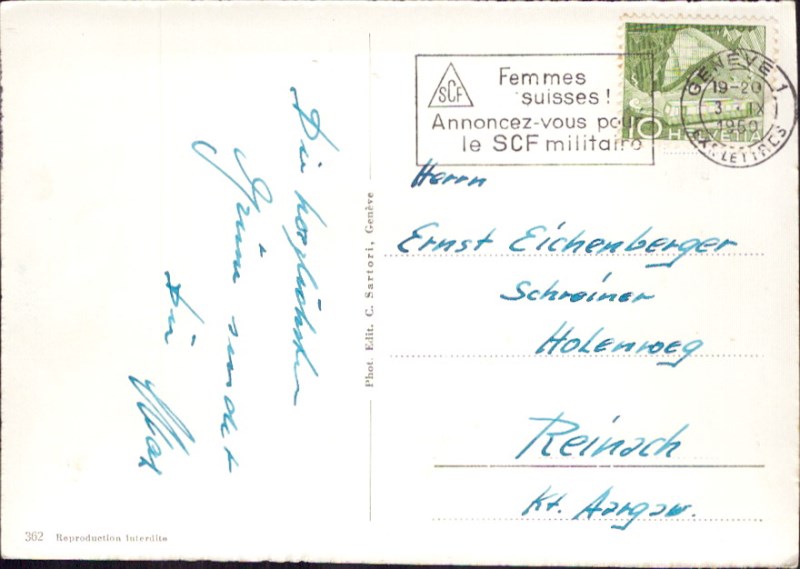 Die herzlichsten
Grüsse sendet
Dir
Max
Phot. Edit. C. Sartori, Genève
362 Reproduction Interdite
SCF
Femmes
suisses!
Annoncez-vous pour
le SCF militaire
10 HELVETIA
GENÈVE 1
19-20
IX
1950
EXP. LETTRES
Herrn
Ernst Eichenberger
Schreiner
Holenweg
Reinach
Kt. Aargau.